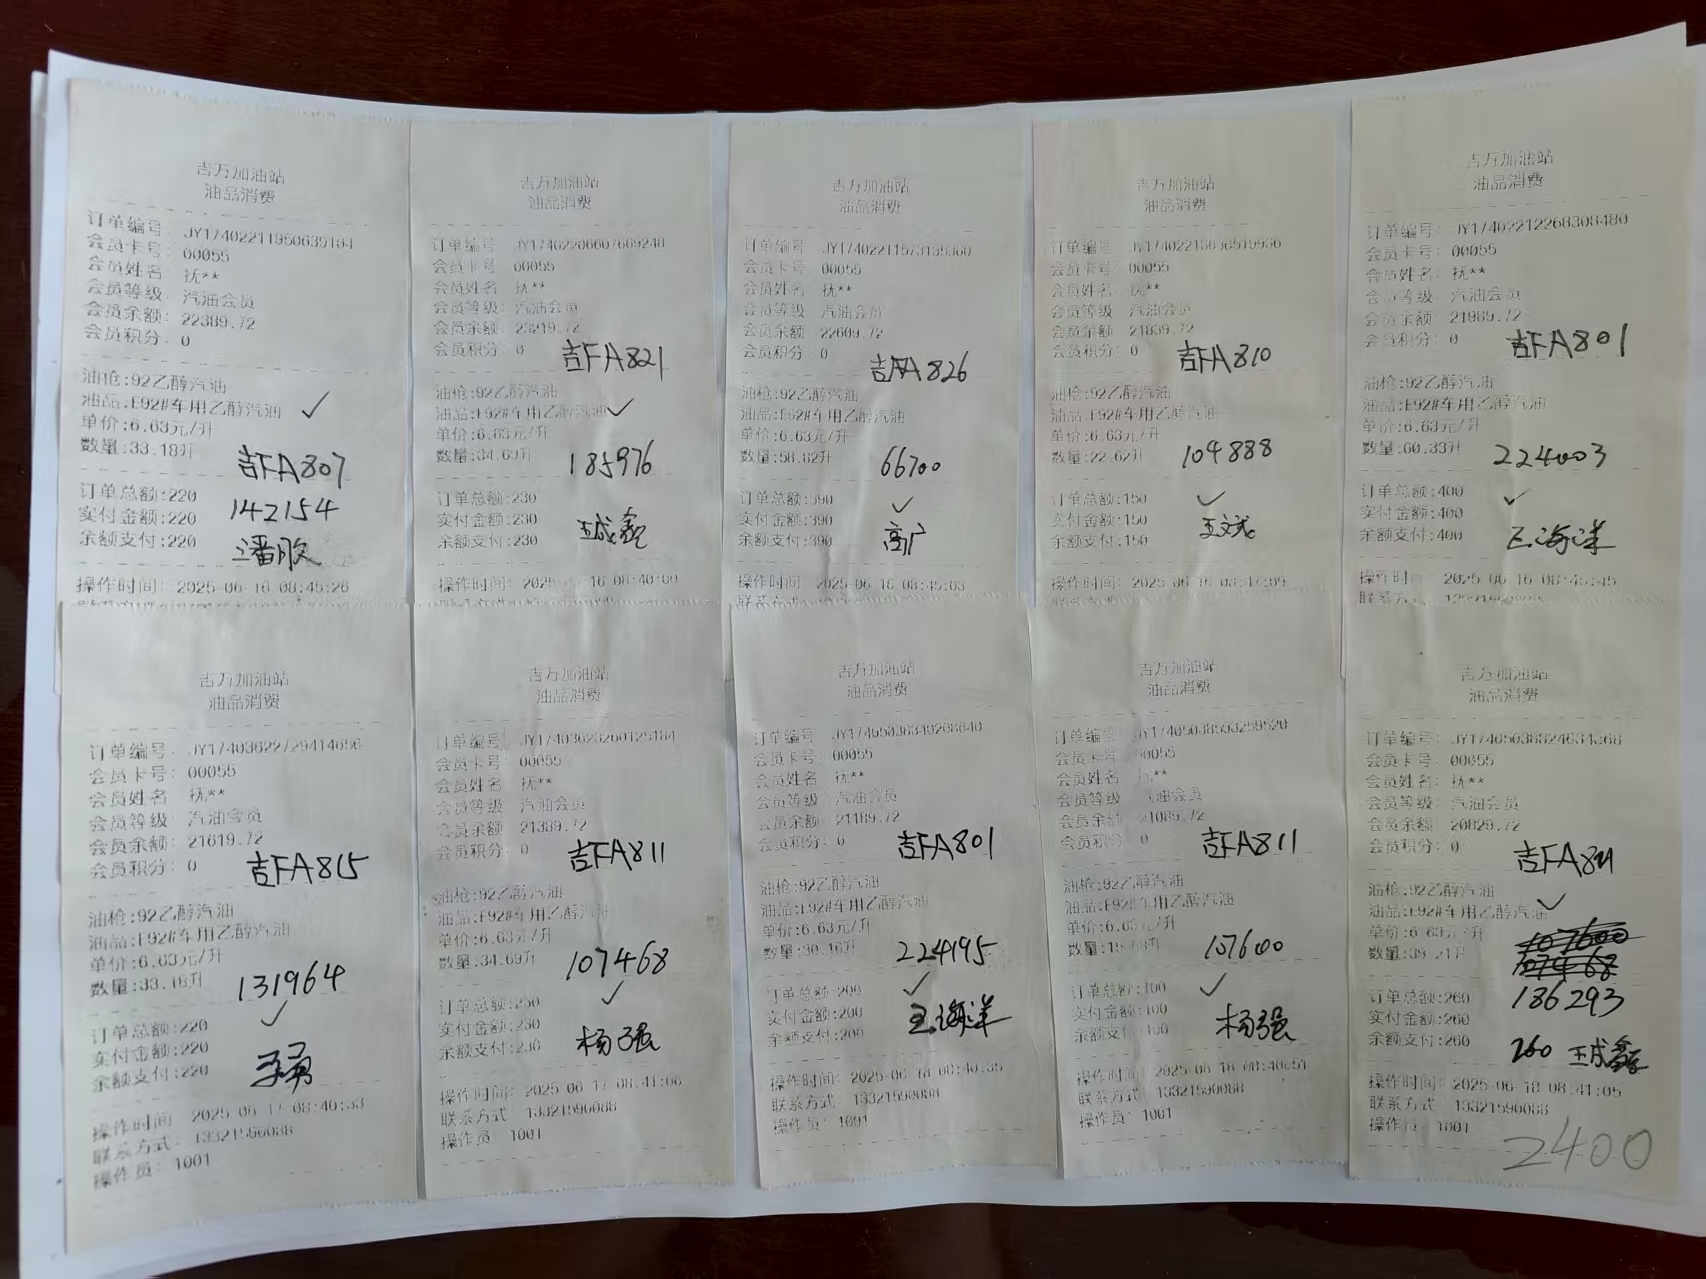 吉万加油站
油品消费
订单编号 JY17402211950639104
会员卡号: 00055
会员姓名: 抚**
会员等级: 汽油会员
会员余额: 22389.72
会员积分: 0
油枪:92乙醇汽油
油品:E92#车用乙醇汽油 ✓
单价:6.63元/升
数量:33.18升
吉FA807
订单总额:220
142154
实付金额:220
余额支付:220
操作时间: 2025-06-16 08:45:26
吉万加油站
油品消费
订单编号 JY1740220667669248
会员卡号 00055
会员姓名: 抚**
会员等级: 汽油会员
会员余额: 23219.72
会员积分 0
吉FA821
油枪:92乙醇汽油
油品:E92#车用乙醇汽油 ✓
单价:6.63元/升
数量:34.69升
185976
订单总额:230
实付金额:230
王成鑫
余额支付:230
操作时间: 2025-06-16 08:40:00
吉万加油站
油品消费
订单编号 JY17402211573135360
会员卡号 00055
会员姓名: 抚**
会员等级: 汽油会员
会员余额 22609.72
会员积分 0
吉FA826
油枪:92乙醇汽油
油品:E92#车用乙醇汽油
单价:6.63元/升
数量:58.82升
66700
订单总额:390 ✓
实付金额:390
高广
余额支付:390
操作时间 2025-06-16 08:45:03
吉万加油站
油品消费
会员卡号: 00055
会员姓名: 抚**
会员等级 汽油会员
会员余额 21839.72
会员积分 0
吉FA810
油枪:92乙醇汽油
油品:E92#车用乙醇汽油
单价:6.63元/升
数量:22.62升
104888
订单总额:150 ✓
实付金额:150
王斌
余额支付:150
操作时间: 2025-06-16 08:47:09
吉万加油站
油品消费
订单编号: JY17402212268308480
会员卡号: 00055
会员姓名: 抚**
会员等级: 汽油会员
会员余额 21989.72
会员积分: 0
吉FA801
油枪:92乙醇汽油
油品:E92#车用乙醇汽油
单价:6.63元/升
数量:60.33升
224003
订单总额:400 ✓
实付金额:400
余额支付:400
王海洋
操作时 2025-06-16 08:45:45
吉万加油站
油品消费
订单编号: JY17403622729414656
会员卡号: 00055
会员姓名 抚**
会员等级 汽油会员
会员余额: 21619.72
会员积分: 0
吉FA815
油枪:92乙醇汽油
油品:E92#车用乙醇汽油
单价:6.63元/升
数量:33.18升
131964
订单总额:220 ✓
实付金额:220
余额支付:220
操作时间 2025-06-17 08:40:53
联系方式: 13321590088
操作员: 1001
吉万加油站
油品消费
订单编号: JY17403623260125184
会员卡号: 00055
会员姓名: 抚**
会员等级 汽油会员
会员余额 21389.72
会员积分: 0
吉FA811
油枪:92乙醇汽油
油品:E92#车用乙醇汽油
单价:6.63元/升
数量:34.69升
107468
订单总额:230 ✓
实付金额:230
余额支付:230
杨强
操作时间: 2025-06-17 08:41:06
联系方式: 13321590088
操作员: 1001
吉万加油站
油品消费
会员卡号: 00055
会员姓名 抚**
会员等级 汽油会员
会员余额: 21189.72
会员积分: 0
吉FA801
油枪:92乙醇汽油
油品:E92#车用乙醇汽油
单价:6.63元/升
数量:30.16升
224195
订单总额:200 ✓
实付金额:200
王海洋
余额支付:200
操作时间: 2025-06-18 08:40:35
联系方式: 13321590088
操作员: 1001
吉万加油站
油品消费
会员卡号: 00055
会员姓名: **
会员等级 汽油会员
会员余额 21089.72
会员积分: 0
吉FA811
油枪:92乙醇汽油
油品:E92#车用乙醇汽油
单价:6.63元/升
数量:15.08升
107600
订单总额:100 ✓
实付金额:100
余额支付:100
杨强
操作时间: 2025-06-18 08:40:51
联系方式: 13321590088
操作员: 1001
吉万加油站
油品消费
订单编号: JY17405038824634368
会员卡号: 00055
会员姓名: 抚**
会员等级: 汽油会员
会员余额: 20829.72
会员积分: 0
吉FA821
油枪:92乙醇汽油
油品:E92#车用乙醇汽油 ✓
单价:6.63元/升
107600
数量:39.21升
107468
订单总额:260
186293
实付金额:260
余额支付:260
260 王成鑫
操作时间: 2025-06-18 08:41:05
联系方式: 13321590088
操作员: 1001
2400